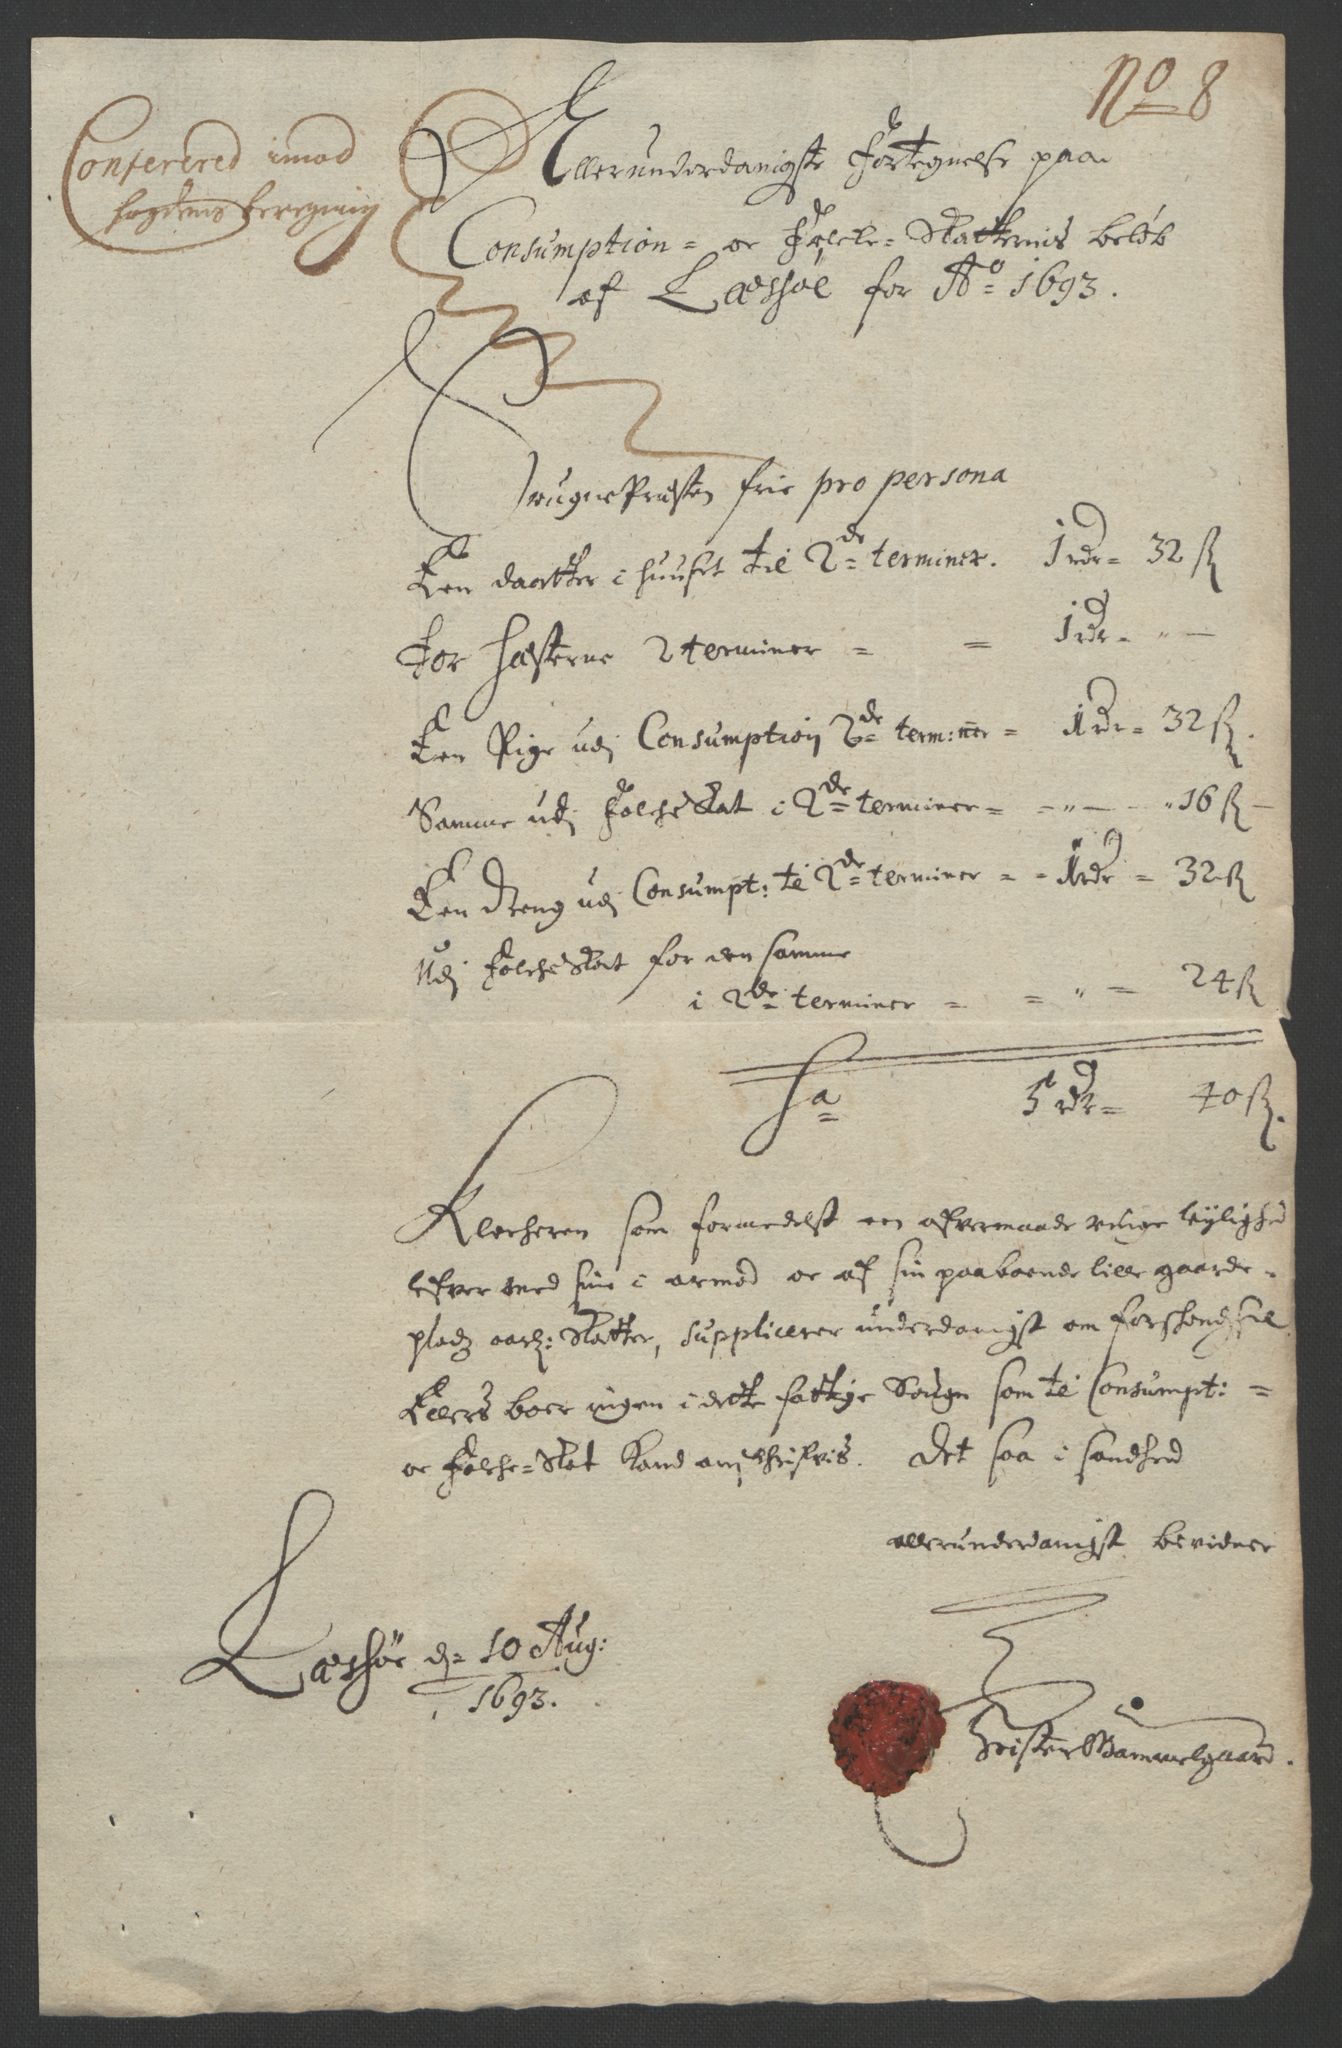 No 8
Conferered imod
fogdens beregning
Allerunderdanigste Fortegnelse paa
Consumption = oc Folcke = Skatternis beløb
af Læssøe for Ao 1693.
Sougnepræsten frie pro persona
Een daatter i huuset til 2de terminer. 1 rdr = 32 ß
For hæsterne 2 terminer = = 1 rdr = " —
Een Pige udj Consumption 2de term:ner = 1 rdr = 32 ß.
Samme udj FolcheSkat i 2de terminer = - " - - " 16 ß -
Een dreng udj Consumpt: til 2de terminer = = 1 rdr = 32 ß
Udj FolcheSkat for den samme
i 2de terminer = = " = 24 ß
Sa 5 rdr = 40 ß.
Klocheren som formedelst en leylighed
lefver med sine i armod oc af sin paaboende lille gaarde =
pladz aarl: Skatter, supplicerer underdanigst om forskaanszel
Ellers boer ingen i dette fattige Sougn som til Consumpt: =
oc Folche = Skat kand anschrifvis. Det saa i sandhed
allerunderdanigst bevidner
Læssøe d = 10 Aug:
1693.
Christen Bammelgaard.